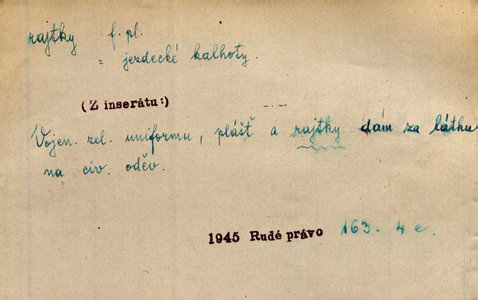 rajtky f. pl.
= jezdecké kalhoty.
(Z inserátu:)
Vojen. zel. uniformu, plášť a rajtky dám za látku
na civ. oděv.
1945 Rudé právo 163. 4 e.